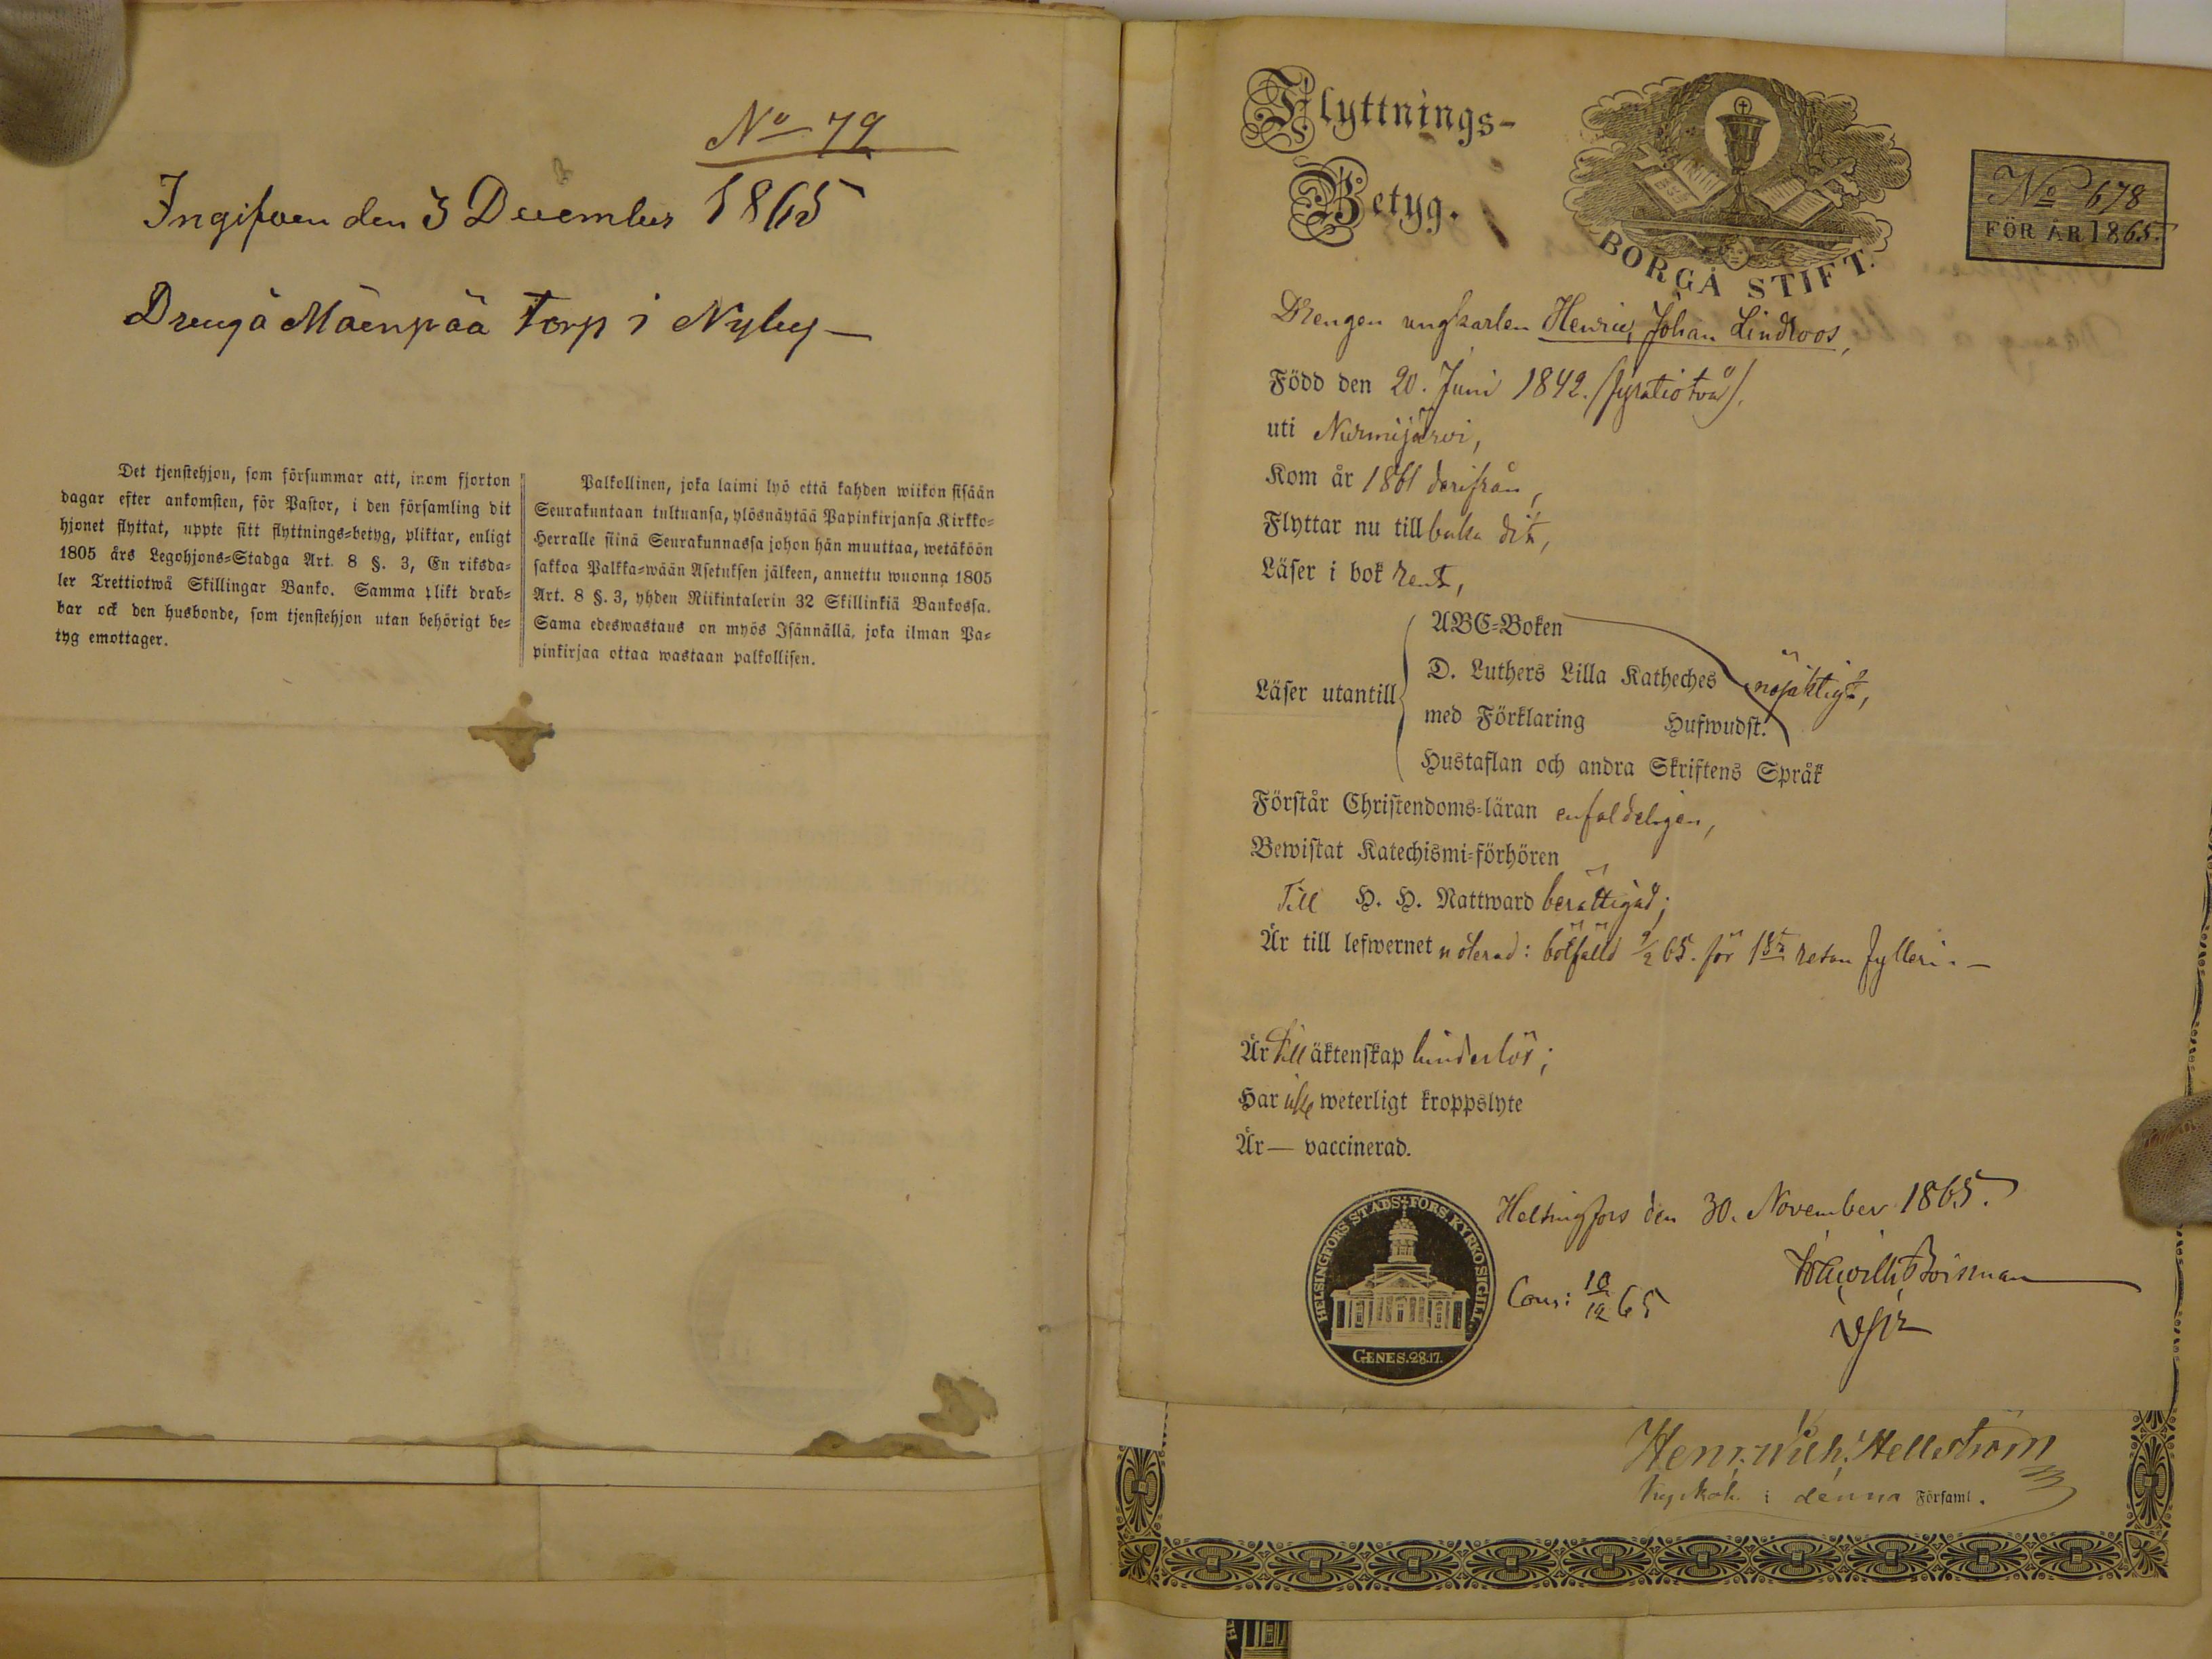 No 79
Ingifven den 3 December 1865
Dreng å Mäenpää Torp i Nyby —
Det tjenstehjon, som försummar att, inom fjorton
dagar efter ankomsten, för Pastor, i den församling dit
hjonet flyttat, uppte sitt flyttnings=betyg, pliktar, enligt
1805 års Legohjons=Stadga Art. 8 §. 3, En riksda=
ler Trettiotwå Skillingar Banko. Samma plikt drab=
bar ock den husbonde, som tjenstehjon utan behörigt be=
tyg emottager.
Palkollinen, joka laimi lyö että kahden wiikon sisään
Seurakuntaan tultuansa, ylösnäytää Papinkirjansa Kirkko=
Herralle siinä Seurakunnassa johon hän muuttaa, wetäköön
sakkoa Palkka=wään Asetuksen jälkeen, annettu wuonna 1805
Art. 8 §. 3, yhden Riikintalerin 32 Skillinkiä Bankossa.
Sama edeswastaus on myös Isännällä, joka ilman Pa=
pinkirjaa ottaa wastaan palkollisen.
Flyttnings-
Betyg.
BORGÅ STIFT.
No 678
FÖR ÅR 1865.
Drengen ungkarlen Henric Johan Lindroos,
Född den 20. Juni 1842. /fyratiotvå/.
uti Nurmijärvi,
Kom år 1861 derifrån,
Flyttar nu tillbaka dit,
Läser i bok rent,
Läser utantill
ABC=Boken
D. Luthers Lilla Katheches nöjaktigt,
med Förklaring Hufwudst.
Hustaflan och andra Skriftens Språk
Förstår Christendoms=läran enfaldeligen,
Bewistat Katechismi=förhören —
Till H. H. Nattward berättigad;
Är till lefwernet noterad: botfälld 9/2 65. för 1sta resan fylleri. —
Är till äktenskap hinderlös;
Har icke weterligt kroppslyte
Är — vaccinerad.
Helsingfors den 30. November 1865.
HELSINGFORS STADS FÖRS. KYRKOSIGILL.
GENES. 28.17.
Cons: 10/12 65
Henr. Wilh. Hellström
i denna Församl.